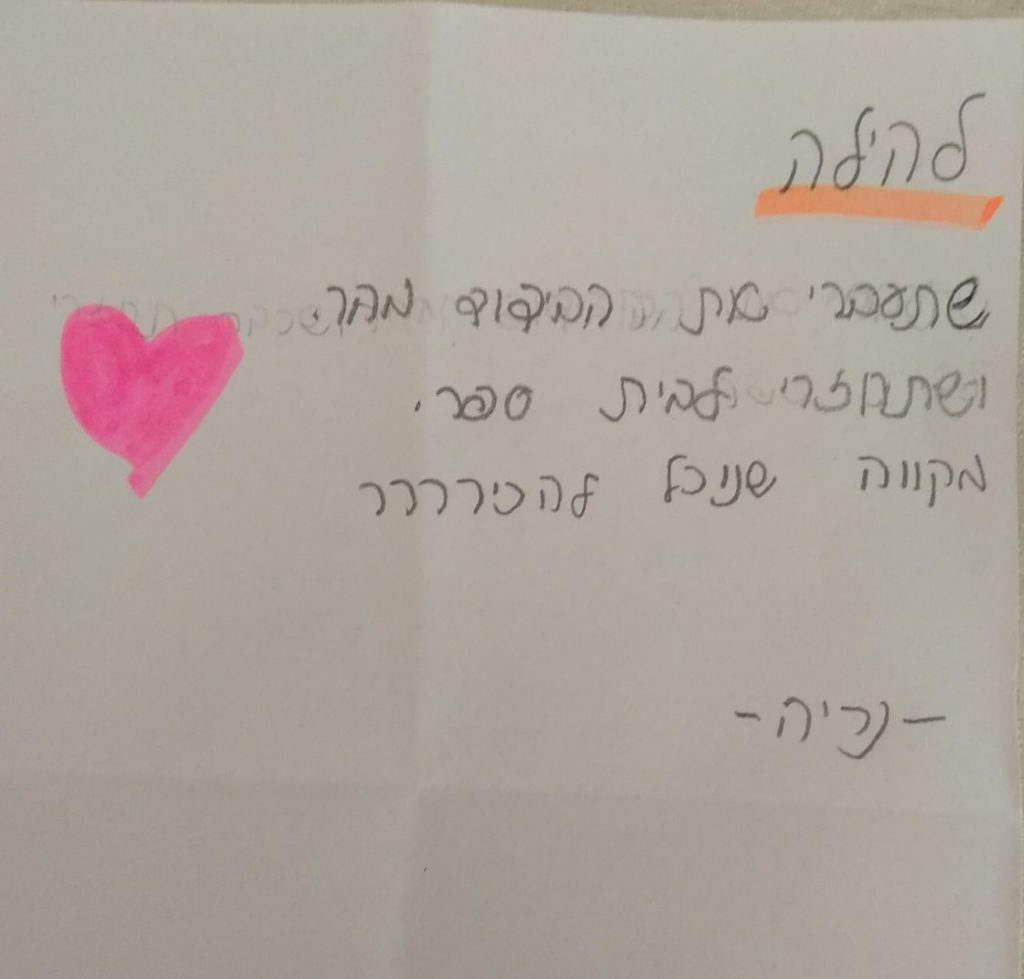 להילה
שתעברי את הבידוד מהר.
ושתחזרי לבית ספר.
מקווה שניכל להכירררר
-נריה-